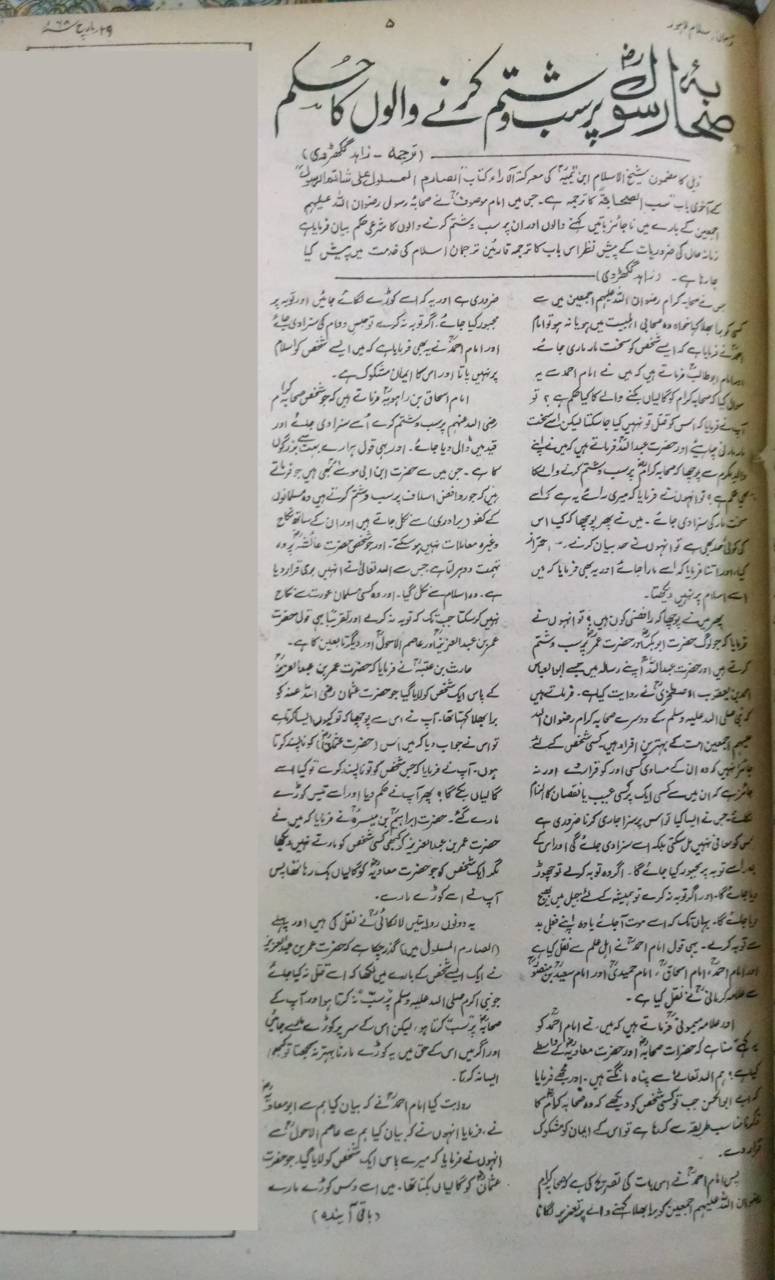 ۲۹ مارچ ۶۸ء
۵
ترجمان اسلام لاہور
صحابۂ رسولؓ پر سب و شتم کرنے والوں کا حکم
(ترجمہ - زاہد گکھڑوی)
ذیل کا مضمون شیخ الاسلام ابن تیمیہؒ کی معرکۃ الآراء کتاب "الصارم المسلول علی شاتم الرسول"
کے آخری باب "سب الصحابۃ" کا ترجمہ ہے۔ جس میں امام موصوف نے صحابہ رسول رضوان اللہ علیہم
اجمعین کے بارے میں ناجائز باتیں کہنے والوں اور ان پر سب و شتم کرنے والوں کا شرعی حکم بیان فرمایا ہے
زمانہ حال کی ضروریات کے پیش نظر اس باب کا ترجمہ قارئین ترجمان اسلام کی خدمت میں پیش کیا
جا رہا ہے۔ (زاہد گکھڑوی)
جس نے صحابہ کرام رضوان اللہ علیہم اجمعین میں سے
کسی کو برا بھلا کہا خواہ وہ صحابی اہلبیت میں ہو یا نہ ہو تو امام
احمدؒ نے فرمایا ہے کہ ایسے شخص کو سخت مار ماری جائے۔
اور امام ابو طالبؒ فرماتے ہیں کہ میں نے امام احمد سے یہ
سوال کیا کہ صحابہ کرام کو گالیاں بکنے والے کا کیا حکم ہے؟ تو
آپ نے فرمایا کہ اس کو قتل تو نہیں کیا جا سکتا لیکن اسے سخت
مار مارنی چاہیے اور حضرت عبد اللہؒ فرماتے ہیں کہ میں نے اپنے
والد مکرم سے پوچھا کہ صحابہ کرامؓ پر سب و شتم کرنے والے کا
کیا حکم ہے؟ تو انہوں نے فرمایا کہ میری رائے یہ ہے کہ اسے
سخت مار کی سزا دی جائے۔ میں نے پھر پوچھا کہ کیا اس
کی کوئی حد بھی ہے تو انہوں نے حد بیان کرنے سے احتراز
کیا، اور اتنا فرمایا کہ اسے مارا جائے اور یہ بھی فرمایا کہ میں
اسے اسلام پر نہیں دیکھتا۔
پھر میں نے پوچھا کہ رافضی کون ہیں؟ تو انہوں نے
فرمایا کہ جو لوگ حضرت ابوبکرؓ اور حضرت عمرؓ پر سب و شتم
کرتے ہیں اور حضرت عبد اللہؒ اپنے رسالہ میں جسے ابو العباس
احمد بن یعقوب الاصطخریؒ نے روایت کیا ہے۔ فرماتے ہیں
کہ نبی صلی اللہ علیہ وسلم کے دوسرے صحابہ کرام رضوان اللہ
علیہم اجمعین امت کے بہترین افراد ہیں کسی شخص کے لئے
جائز نہیں کہ وہ ان کے مساوی کسی اور کو قرار دے اور نہ
جائز ہے کہ ان میں سے کسی ایک پر کسی عیب یا نقصان کا الزام
لگائے جس نے ایسا کیا تو اس پر سزا جاری کرنا ضروری ہے
اس کو معافی نہیں مل سکتی بلکہ اسے سزا دی جائے گی اور اس کے
بعد اسے توبہ پر مجبور کیا جائے گا۔ اگر وہ توبہ کرلے تو چھوڑ
دیا جائے گا۔ اور اگر توبہ نہ کرے تو ہمیشہ کے لئے جیل میں بھیج
دیا جائے گا۔ یہاں تک کہ اسے موت آجائے یا وہ اپنے فعل بد
سے توبہ کرے۔ یہی قول امام احمدؒ نے اہل علم سے نقل کیا ہے
اور امام احمدؒ، امام اسحاقؒ، امام حمیدیؒ اور امام سعیدؒ بن منصورؒ
سے علامہ کرمانیؒ نے نقل کیا ہے۔
اور علامہ میمونیؒ فرماتے ہیں کہ میں نے امام احمدؒ کو
یہ کہتے سنا ہے کہ حضرات صحابہؓ اور حضرت معاویہؓ کے واسطے
کیا ہے؟ ہم اللہ تعالیٰ سے پناہ مانگتے ہیں۔ اور مجھے فرمایا
کہ اے ابوالحسن جب تو کسی شخص کو دیکھے کہ وہ صحابہ کرامؓ کا
ذکر نامناسب طریقے سے کرتا ہے تو اس کے ایمان کو مشکوک
قرار دے۔
پس امام احمدؒ نے اسی بات کی تصریح کی ہے کہ صحابہ کرام
رضوان اللہ علیہم اجمعین کو برا بھلا کہنے والے پر تعزیر لگانا
ضروری ہے اور یہ کہ اسے کوڑے لگائے جائیں اور توبہ پر
مجبور کیا جائے۔ اگر توبہ نہ کرے تو حبس دوام کی سزا دی جائے
اور امام احمدؒ نے یہ بھی فرمایا ہے کہ میں ایسے شخص کو اسلام
پر نہیں پاتا اور اس کا ایمان مشکوک ہے۔
امام اسحاق بن راہویہؒ فرماتے ہیں کہ جو شخص صحابہ کرام
رضی اللہ عنہم پر سب و شتم کرے اُسے سزا دی جائے اور
قید میں ڈالی دیا جائے۔ اور یہی قول ہمارے بہت سے بزرگوں
کا ہے۔ جن میں سے حضرت ابن ابی موسےٰؒ بھی ہیں جو فرماتے
ہیں کہ جو روافض اسلاف پر سب و شتم کرتے ہیں وہ مسلمانوں
کے کفو (برادری) سے نکل جاتے ہیں اور ان کے ساتھ نکاح
وغیرہ معاملات نہیں ہو سکتے۔ اور جو شخص حضرت عائشہؓ پر وہ
تہمت دوہراتا ہے جس سے اللہ تعالیٰ نے انہیں بری قرار دیا
ہے۔ وہ اسلام سے نکل گیا۔ اور وہ کسی مسلمان عورت سے نکاح
نہیں کر سکتا جب تک کہ توبہ نہ کرے اور تقریباً یہی قول حضرت
عمر بن عبد العزیزؒ اور عاصم الاحولؒ اور دیگر تابعین کا ہے۔
حارث بن عتبہؒ نے فرمایا کہ حضرت عمر بن عبد العزیزؒ
کے پاس ایک شخص کو لایا گیا جو حضرت عثمان رضی اللہ عنہ کو
برا بھلا کہتا تھا۔ آپ نے اس سے پوچھا کہ تو کیوں ایسا کرتا ہے
تو اس نے جواب دیا کہ میں اس (حضرت عثمانؓ) کو ناپسند کرتا
ہوں۔ آپ نے فرمایا کہ جس شخص کو تو ناپسند کرے تو کیا اسے
گالیاں بکے گا؟ پھر آپ نے حکم دیا اور اسے تیس کوڑے
مارے گئے۔ حضرت ابراہیمؒ بن میسرہؒ نے فرمایا کہ میں نے
حضرت عمر بن عبد العزیزؒ کو کبھی کسی شخص کو مارتے نہیں دیکھا
مگر ایک شخص کو جو حضرت معاویہؓ کو گالیاں بک رہا تھا پس
آپ نے اسے کوڑے مارے۔
یہ دونوں روایتیں لالکائیؒ نے نقل کی ہیں اور پہلے
(الصارم المسلول میں) گذر چکا ہے کہ حضرت عمر بن عبد العزیزؒ
نے ایک ایسے شخص کے بارے میں لکھا کہ اسے قتل نہ کیا جائے
جو نبی اکرم صلی اللہ علیہ وسلم پر سب نہ کرتا ہو اور آپ کے
صحابہؓ پر سب کرتا ہو، لیکن اس کے سر پر کوڑے مارے جائیں
اور اگر میں اس کے حق میں یہ کوڑے مارنا بہتر نہ سمجھتا تو کبھی
ایسا نہ کرتا۔
روایت کیا امام احمدؒ نے کہ بیان کیا ہم سے ابو معاویہ
نے، فرمایا انہوں نے کہ بیان کیا ہم سے عاصم الاحولؒ نے
انہوں نے فرمایا کہ میرے پاس ایک شخص کو لایا گیا۔ جو حضرت
عثمانؓ کو گالیاں بکتا تھا۔ میں اسے دس کوڑے مارے
(باقی آئندہ)